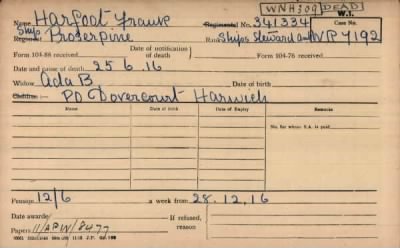 WNH309 DEAD
W.I.
Name Harfoot Frank Regimental No. 341334 Case No.
Ship Regiment Proserpine Rank Ships Steward WP 4192
Form 104-88 received Date of notification of death Form 104-76 received
Date and cause of death 25 6 . 16
Widow Ada B. Date of birth
Children:— PO Dovercourt Harwich
Name Date of Birth Date of Expiry Remarks
No. for whom S.A. is paid
Pension 12/6 a week from 28.12.16
Date awarded If refused,
Papers 11/APW/8477 reason